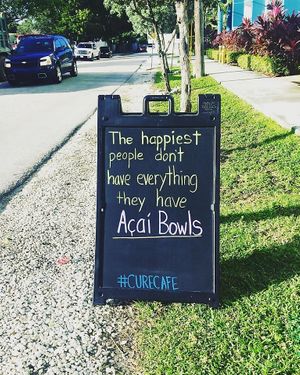 The happiest
people don't
have everything
they have
Açaí Bowls
#CURECAFE